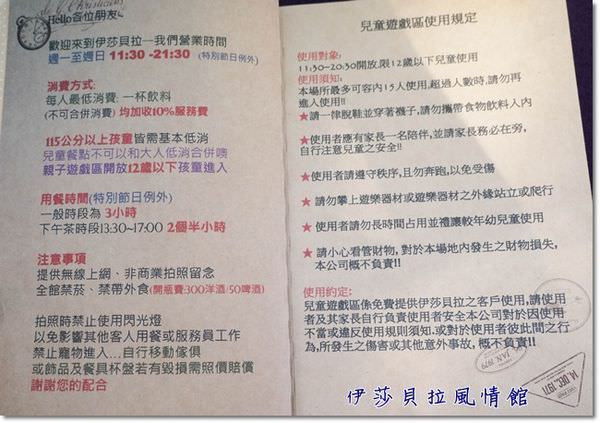 Hello各位朋友
歡迎來到伊莎貝拉—我們營業時間
週一至週日 11:30 -21:30 (特別節日例外)
消費方式:
每人最低消費: 一杯飲料
(不可合併消費) 均加收10%服務費
115公分以上孩童 皆需基本低消
兒童餐點不可以和大人低消合併噢
親子遊戲區開放12歲以下孩童進入
用餐時間(特別節日例外)
一般時段為 3小時
下午茶時段13:30~17:00 2個半小時
注意事項
提供無線上網、非商業拍照留念
全館禁菸、禁帶外食(開瓶費:300洋酒/50啤酒)
拍照時禁止使用閃光燈
以免影響其他客人用餐或服務員工作
禁止寵物進入...自行移動傢俱
或飾品及餐具杯盤若有毀損需照價賠償
謝謝您的配合
兒童遊戲區使用規定
使用對象:
11:30~20:30開放,限12歲以下兒童使用
使用須知:
本場所最多可容內15人使用,超過人數時,請勿再
進入使用!!
★請一律脫鞋並穿著襪子,請勿攜帶食物飲料入內
★使用者應有家長一名陪伴,並請家長務必在旁,
自行注意兒童之安全!!
★使用者請遵守秩序,且勿奔跑,以免受傷
★請勿攀上遊樂器材或遊樂器材之外緣站立或爬行
★使用者請勿長時間占用並禮讓較年幼兒童使用
★請小心看管財物, 對於本場地內發生之財物損失,
本公司概不負責!!
使用約定:
兒童遊戲區係免費提供伊莎貝拉之客戶使用,請使用
者及其家長自行負責使用者安全本公司對於因使用
不當或違反使用規則須知,或對於使用者彼此間之行
為,所發生之傷害或其他意外事故, 概不負責!!
JAN. 1979
14. DEC. 1971
伊莎貝拉風情館